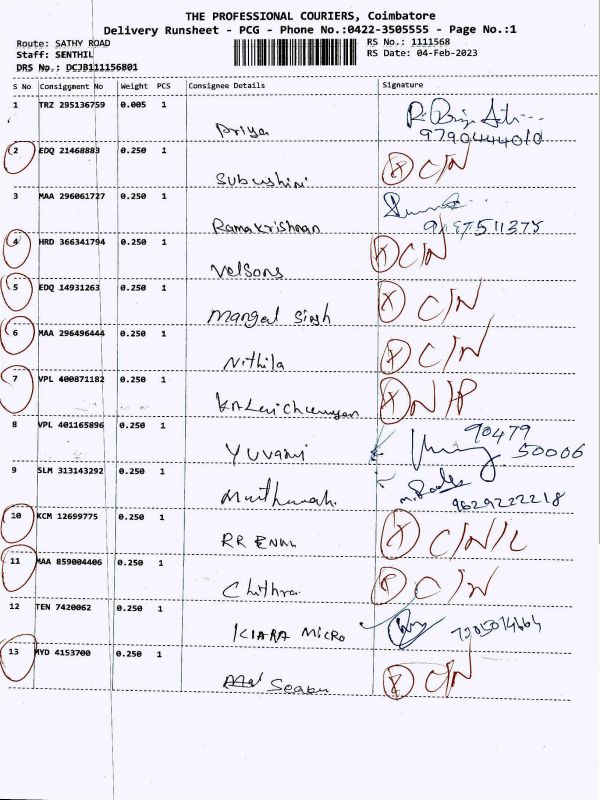 THE PROFESSIONAL COURIERS, Coimbatore
Delivery Runsheet - PCG - Phone No.:0422-3505555 - Page No.:1
Route: SATHY ROAD RS No.: 1111568
Staff: SENTHIL RS Date: 04-Feb-2023
DRS No.: DCJB111156801
S No Consignment No Weight PCS Consignee Details Signature
1 TRZ 295136759 0.005 1
Priya 9790444010
2 EDQ 21468883 0.250 1
Subushini X C/N
3 MAA 296061727 0.250 1
Ramakrishnan
4 HRD 366341794 0.250 1
Velsons X C/N
5 EDQ 14931263 0.250 1
Mangal Singh X C/N
6 MAA 296496444 0.250 1
Nithila X C/N
7 VPL 400871182 0.250 1
X N/P
8 VPL 401165896 0.250 1
Yuvani 90479
50006
9 SLM 313143292 0.250 1
9629222218
10 KCM 12699775 0.250 1
RR X C/N/L
11 MAA 859004406 0.250 1
Chithra X C/N
12 TEN 7420062 0.250 1
KIARA MICRO
13 MYD 4153700 0.250 1
X C/N